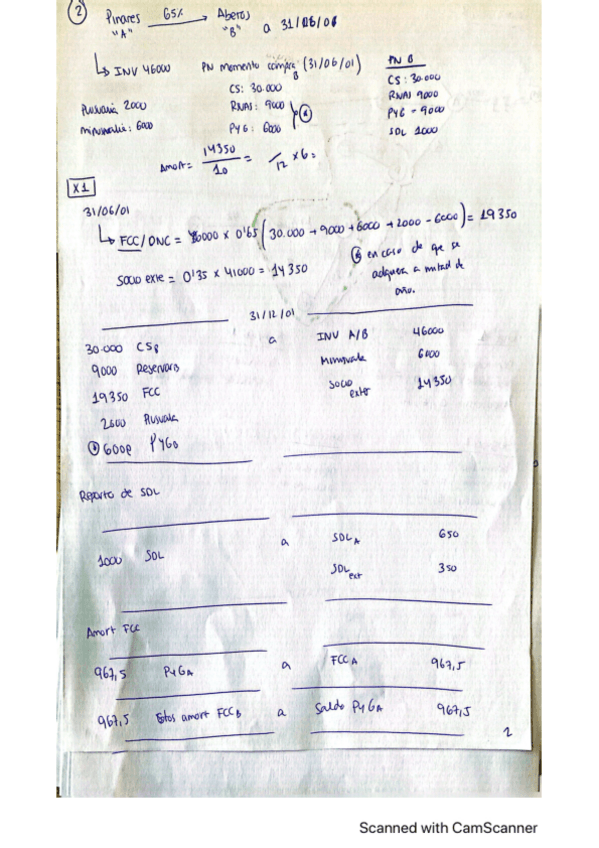 2 Pinares 65% → Aberos a 31/06/01
"A" "B"
↳ INV 46000 PN momento compra B (31/06/01) PN B
CS: 30.000 CS: 30.000
Plusvalía 2000 RNAS: 9000 RNAS 9000
Minusvalía: 6000 PYG: 6000 PYG = 9000
SDL 1000
Amort = 14350 / 10 = /12 x 6 =
X1
31/06/01
↳ FCC/DNC = 46000 x 0'65 (30.000 + 9000 + 6000 + 2000 - 6000) = 19350
Socio exte = 0'35 x 41000 = 14350
en caso de que se
adquiera a mitad de
año.
31/12/01
30.000 CSB a INV A/B 46000
9000 Reservas Minusvalía 6000
19350 FCC Socio exter 14350
2000 Plusvalía
6000 PYGB
Reparto de SDL
1000 SDL a SDL A 650
SDL ext 350
Amort FCC
967,5 PYGA a FCCA 967,5
967,5 Gtos amort FCCB a Saldo PYGA 967,5
2
Scanned with CamScanner